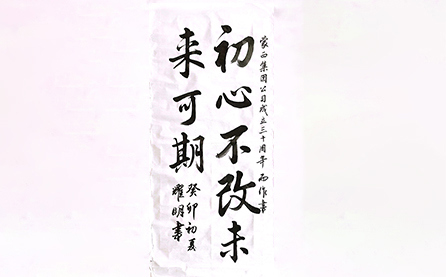 蒙西集团公司成立三十周年而作书
初心不改未
来可期
癸卯初夏
耀明书